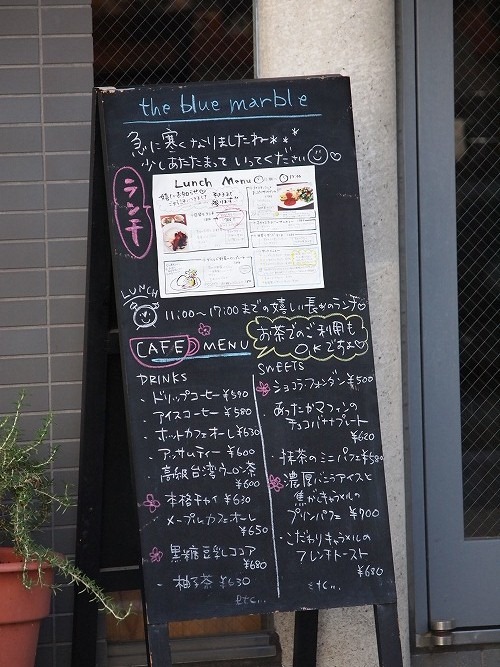 the blue marble
急に寒くなりましたね***
少しあたたまって いってください
ランチ
Lunch Menu
LUNCH
11:00～17:00までの嬉しい長めのランチ♡
お茶でのご利用も
OKですよ
CAFE MENU
DRINKS
・ドリップコーヒー ¥590
・アイスコーヒー ¥580
・ホットカフェオーレ ¥630
・アッサムティー ¥600
・高級台湾ウーロン茶
¥600
本格チャイ ¥630
・メープルカフェオーレ
¥650
黒糖豆乳ココア
¥680
・柚子茶 ¥630
etc...
SWEETS
ショコラ・フォンダン ¥500
・あったかマフィンの
チョコバナナプレート
¥620
・抹茶のミニパフェ ¥580
濃厚バニラアイスと
焦がしキャラメルの
プリンパフェ ¥700
・こだわりキャラメルの
フレンチトースト
¥680
etc...